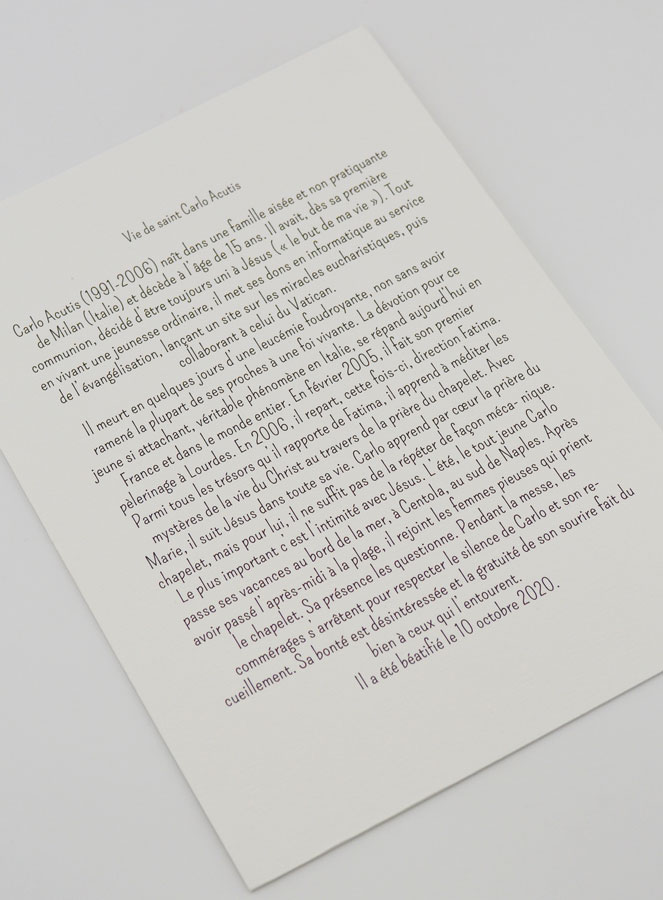 Vie de saint Carlo Acutis
Carlo Acutis (1991-2006) naît dans une famille aisée et non pratiquante
de Milan (Italie) et décède à l'âge de 15 ans. Il avait, dès sa première
communion, décidé d'être toujours uni à Jésus (« le but de ma vie »). Tout
en vivant une jeunesse ordinaire, il met ses dons en informatique au service
de l'évangélisation, lançant un site sur les miracles eucharistiques, puis
collaborant à celui du Vatican.
Il meurt en quelques jours d'une leucémie foudroyante, non sans avoir
ramené la plupart de ses proches à une foi vivante. La dévotion pour ce
jeune si attachant, véritable phénomène en Italie, se répand aujourd'hui en
France et dans le monde entier. En février 2005, il fait son premier
pèlerinage à Lourdes. En 2006, il repart, cette fois-ci, direction Fatima.
Parmi tous les trésors qu'il rapporte de Fatima, il apprend à méditer les
mystères de la vie du Christ au travers de la prière du chapelet. Avec
Marie, il suit Jésus dans toute sa vie. Carlo apprend par cœur la prière du
chapelet, mais pour lui, il ne suffit pas de la répéter de façon méca- nique.
Le plus important c'est l'intimité avec Jésus. L'été, le tout jeune Carlo
passe ses vacances au bord de la mer, à Centola, au sud de Naples. Après
avoir passé l'après-midi à la plage, il rejoint les femmes pieuses qui prient
le chapelet. Sa présence les questionne. Pendant la messe, les
commérages s'arrêtent pour respecter le silence de Carlo et son re-
cueillement. Sa bonté est désintéressée et la gratuité de son sourire fait du
bien à ceux qui l'entourent.
Il a été béatifié le 10 octobre 2020.